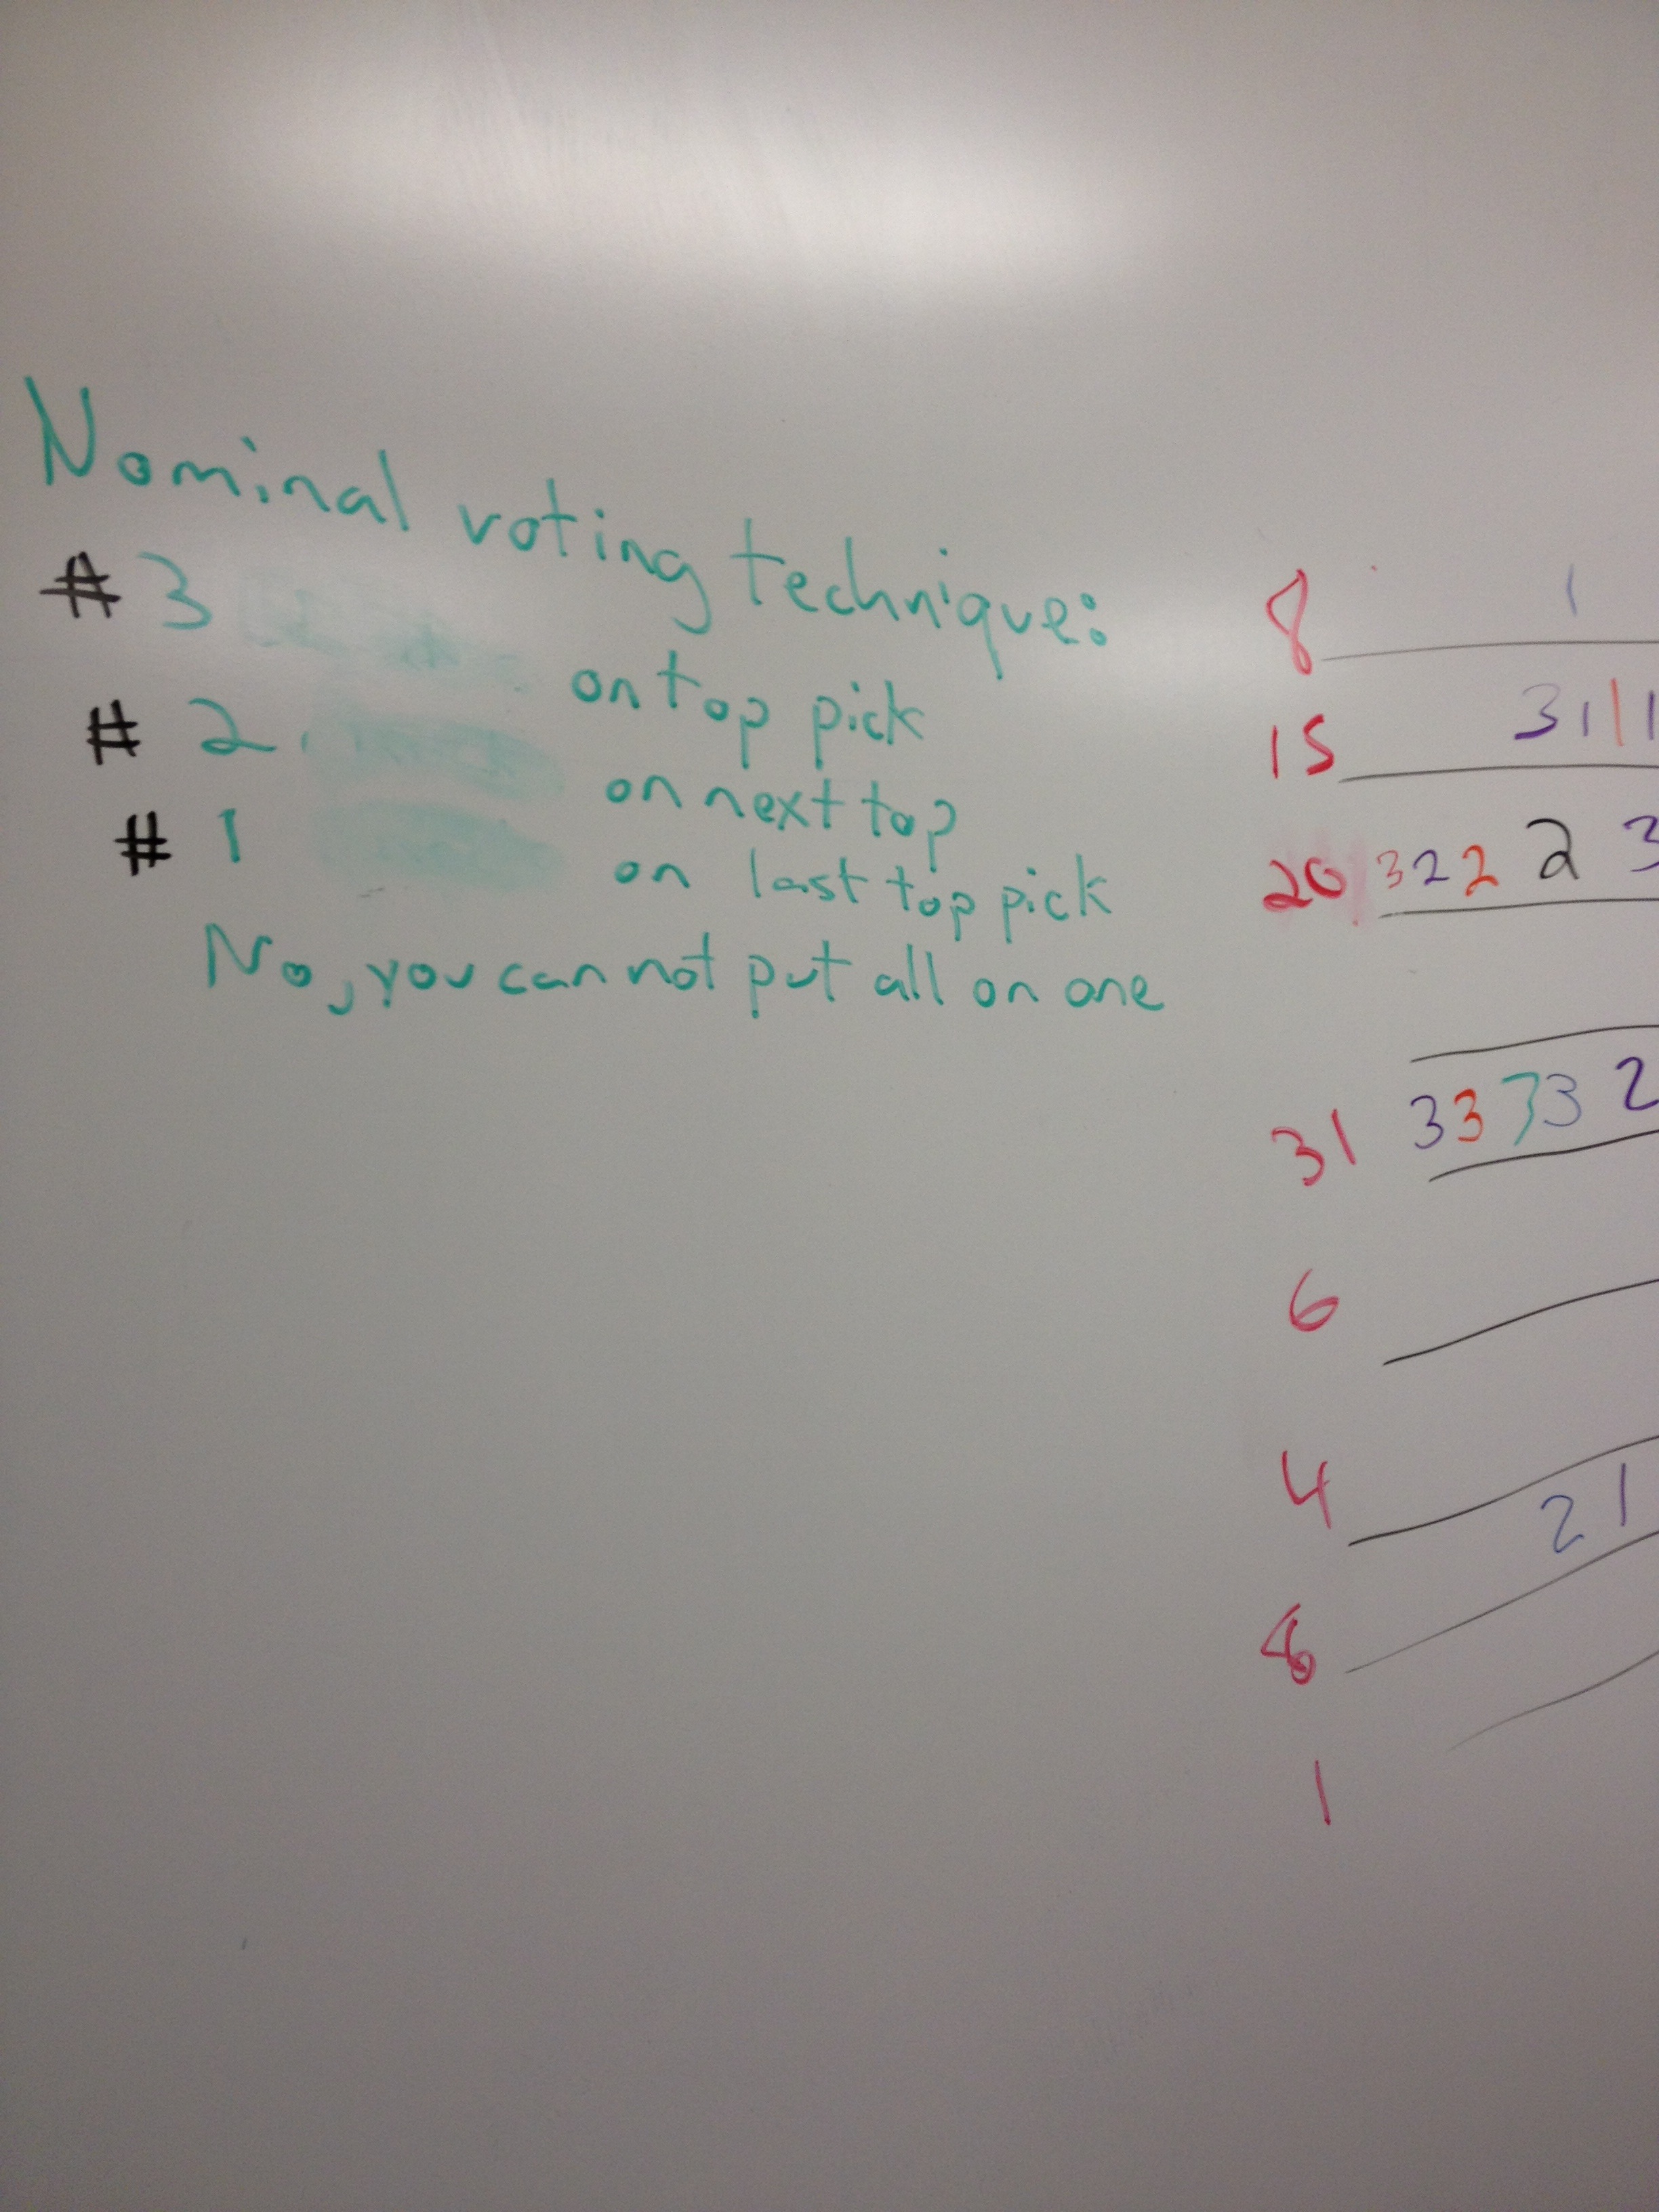 Nominal voting technique:
# 3 on top pick
# 2 on next top
# 1 on last top pick
No, you can not put all on one
8 1
15 3 1 1 1
20 3 2 2 2 3
31 3 3 3 3 2
6
4
2 1
8
1